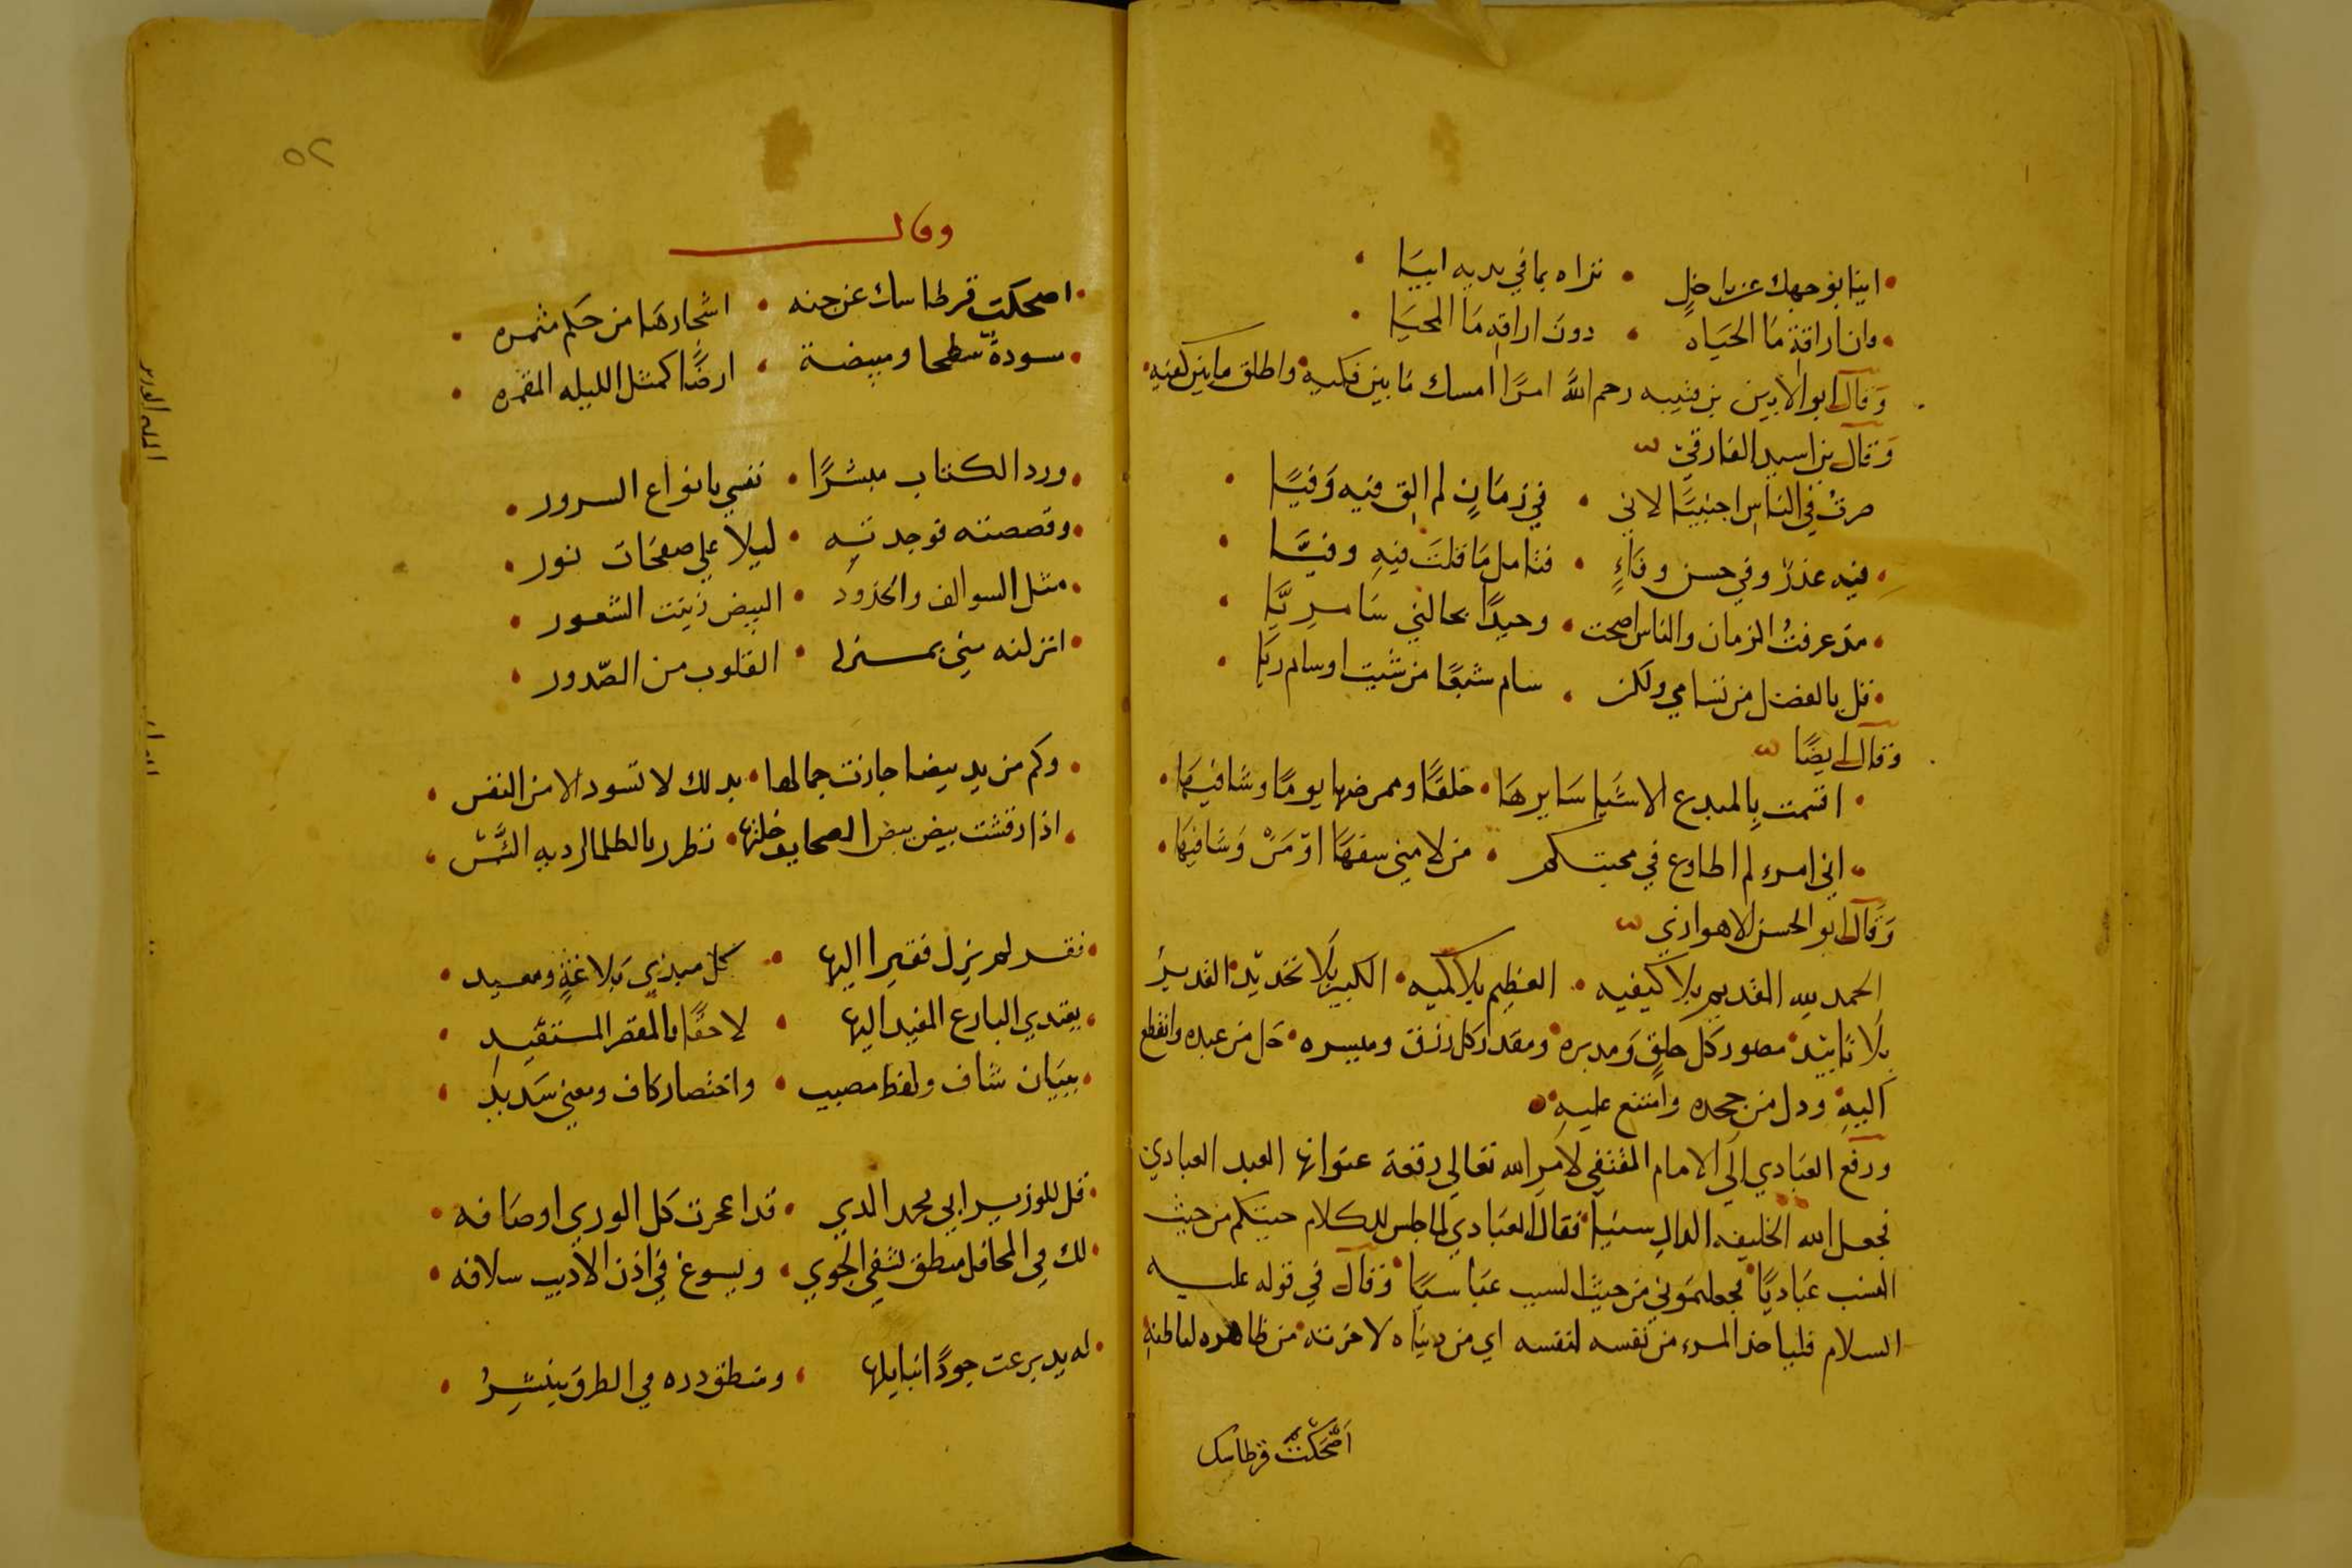 ابنا بوجهك عن باخل • تراه بما في يديه ابيا
وان اراقة ما الحياه • دون اراقه ما المحيا
وقال ابو الاذين بن قتيبه رحم الله امرًا امسك ما بين فكيه واطلق ما بين كفيه
وقال بن اسيد الفارقي
صرتُ في الناس اجنبيًا لاني • في زمانٍ لم الق فيه وفيًا
فيه عذرٌ وفي حسن وفاءٍ • فتامل ما قلت فيه وفيَّا
مذ عرفتُ الزمان والناس اصحت • وحيدًا بحالتي سامريَّا
قل بالفضل من تسامي ولكن • سام شبعًا من شيت او سام ريا
وقال ايضًا
اقسمت بالمبدع الاشيا سايرها • خلقًا وممرضها يومًا وشافيها
اني امرء لم اطاوع في محبتكم • من لامني سفهًا او من وشافيها
وقال ابو الحسن الاهوازي
الحمد لله القديم بلا كيفيه • العظيم بلا كميه • الكبير بلا تحديد القدير
بلا تاييد • مصور كل خلقٍ ومدبره • ومقدر كل رزق وميسره • جل من عبده وانقطع
اليه • ودل من جحده وامتنع عليه
ورفع العبادي الي الامام المقتفي لامر الله تعالي رقعة عنوانها العبد العبادي
فجعل الله الخليفه الدال سينًا فقال العبادي لما جلس للكلام حييتكم من حيث
النسب عباديًا فجعلتموني من حيث السبب عباسيًا وقال في قوله عليه
السلام فلياخذ المرء من نفسه لنفسه اي من دنياه لاخرته من ظاهره لباطنه
اضحكت قرطاسك
٥٢
وقال
اضحكت قرطاسك عن جنه • اشجارها من حكم مثمره
مسودةً سطحا ومبيضة • ارضًا كمثل الليله المقمره
ورد الكتاب مبشرًا • نفسي بانواع السرور
وفصصته فوجدته • ليلا علي صفحات نور
مثل السوالف والخدود • البيض زينت الشعور
انزلته مني بمنزل • القلوب من الصّدور
وكم من يد بيضا جازت جمالها • يد لك لا تسود الا من النفس
اذا رقشت بيض الصحايف خلتها • تطرر بالظلما اردية الشمس
فقد لم يزل فقيرا اليها • كل مبدي بلاغةٍ ومعيد
يقتدي البارع المفيد اليها • لاحقًا بالمقصر المستفيد
ببيان شاف ولفظ مصيب • واختصار كاف ومعني سديد
قل للوزير ابي محمد الذي • قد اعجزت كل الوري اوصافه
لك في المحافل منطق تشفي الجوي • ويسوغ في اذن الاديب سلافه
له يد برعت جودًا انبايلها • ومنطق دره في الطرق ينتثرُ